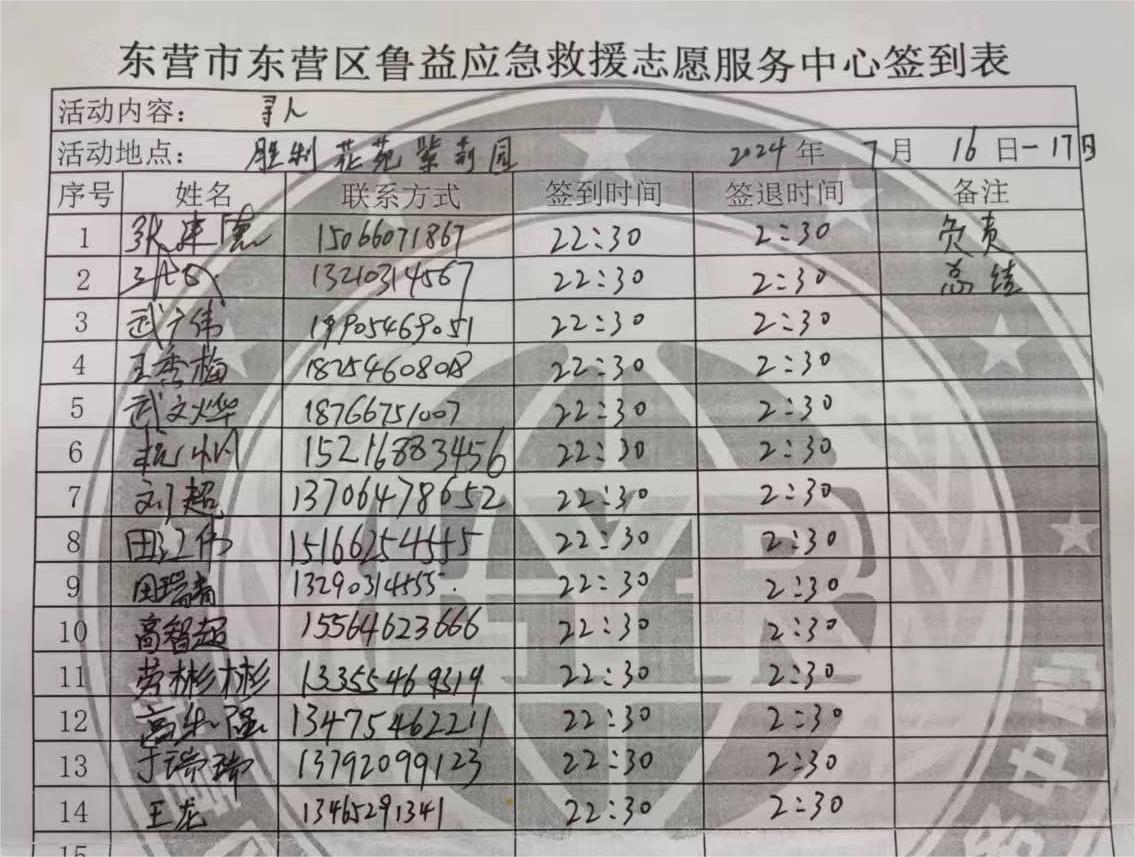 东营市东营区鲁益应急救援志愿服务中心签到表
活动内容： 寻人
活动地点： 胜利花苑紫荆园 2024年 7月 16日-17日
序号 姓名 联系方式 签到时间 签退时间 备注
1 张建 15066071867 22:30 2:30 负责
2 13210314567 22:30 2:30 总结
3 武广伟 19905469051 22:30 2:30
4 王秀梅 18254608018 22:30 2:30
5 武文烨 18766751007 22:30 2:30
6 15216883456 22:30 2:30
7 刘超 13706478652 22:30 2:30
8 田江伟 15166254555 22:30 2:30
9 田瑞青 13290314555 22:30 2:30
10 高智超 15564623666 22:30 2:30
11 劳彬彬 13355469319 22:30 2:30
12 高生强 13475462211 22:30 2:30
13 于瑞瑞 13792099123 22:30 2:30
14 王龙 13465291341 22:30 2:30
15
中心